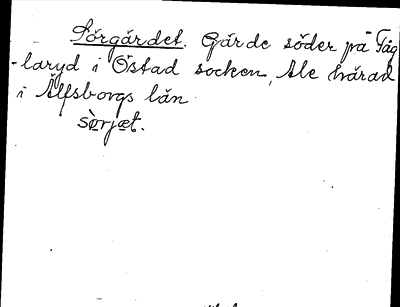 Sörgärdet. Gärde söder på Tåg
-laryd i Östad socken, Ale härad
i Älfsborgs län
sörjæt.